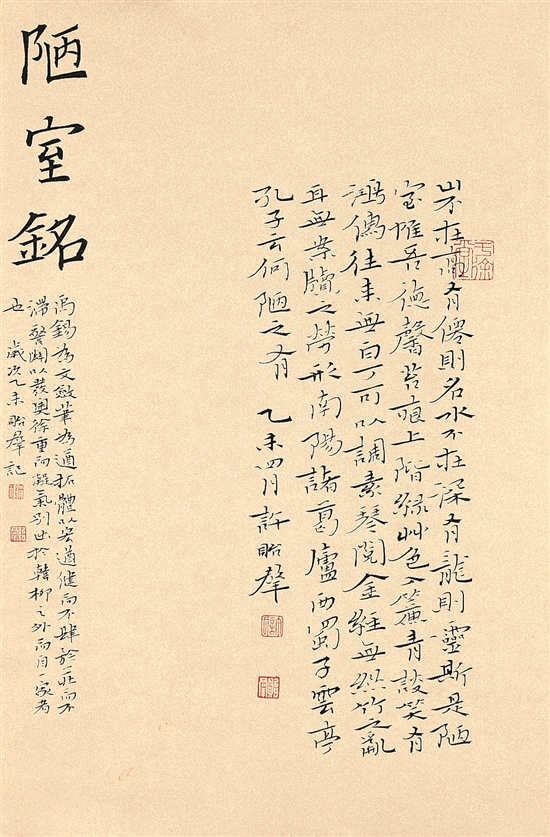 山不在高有僊則名水不在深有龍則靈斯是陋
室惟吾德馨苔痕上階綠艸色入簾青談笑有
鴻儒往來無白丁可以調素琴閱金經無絲竹之亂
耳無案牘之勞形南陽諸葛廬西蜀子雲亭
孔子云何陋之有 乙未四月許羣
陋室銘
禹錫為文斂華為遒拓體以安遒健而不肆於莊而不
滯以發奧徐重而凝氣別出於韓柳之外而自一家者
也 歲次乙未羣記